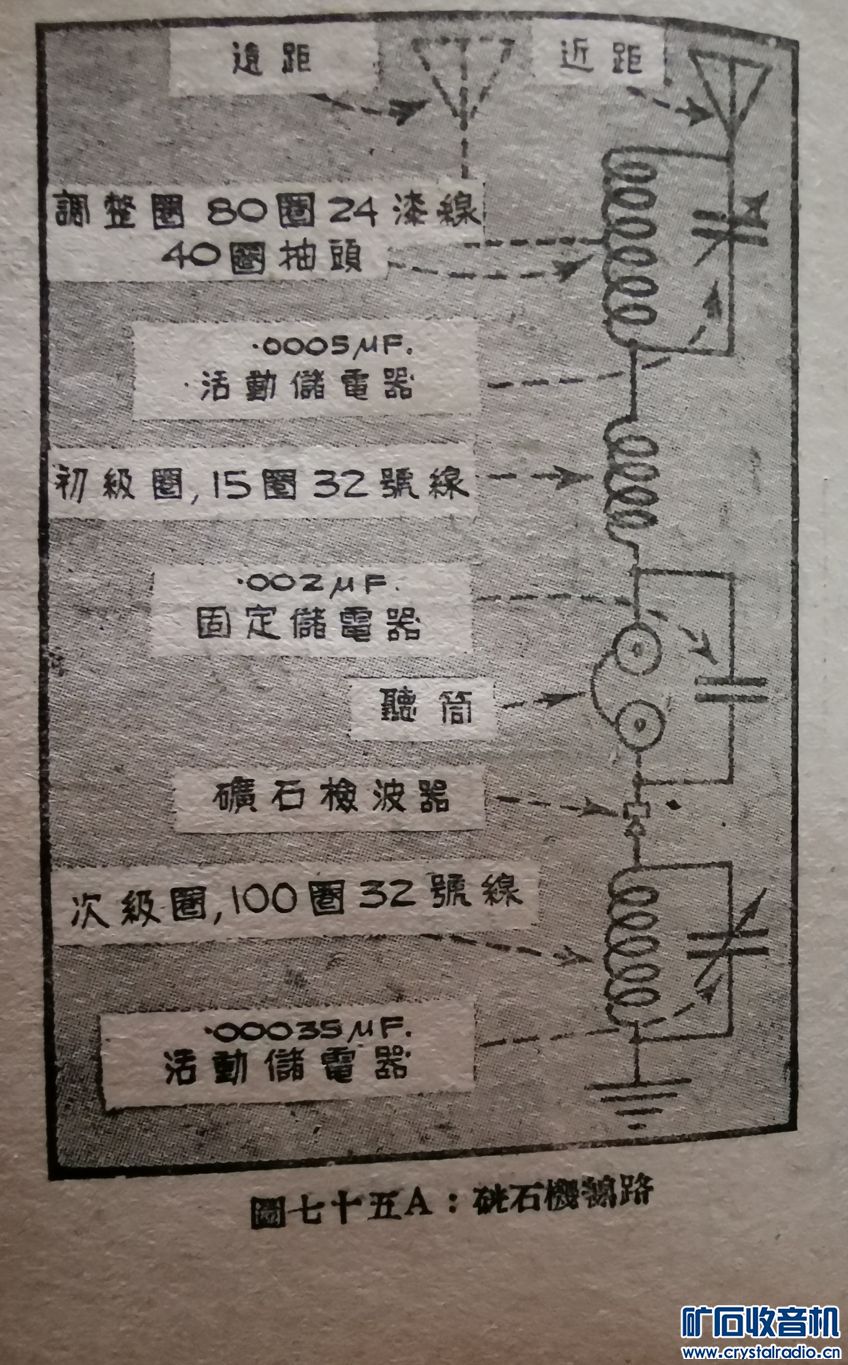 遠距
近距
調整圈 80圈 24漆線
40圈抽頭
.0005μF.
活動儲電器
初級圈,15圈32號線
.002μF.
固定儲電器
聽筒
礦石檢波器
次級圈,100圈32號線
.00035μF.
活動儲電器
圖七十五A:硄石機綫路
矿石收音机
www.crystalradio.cn